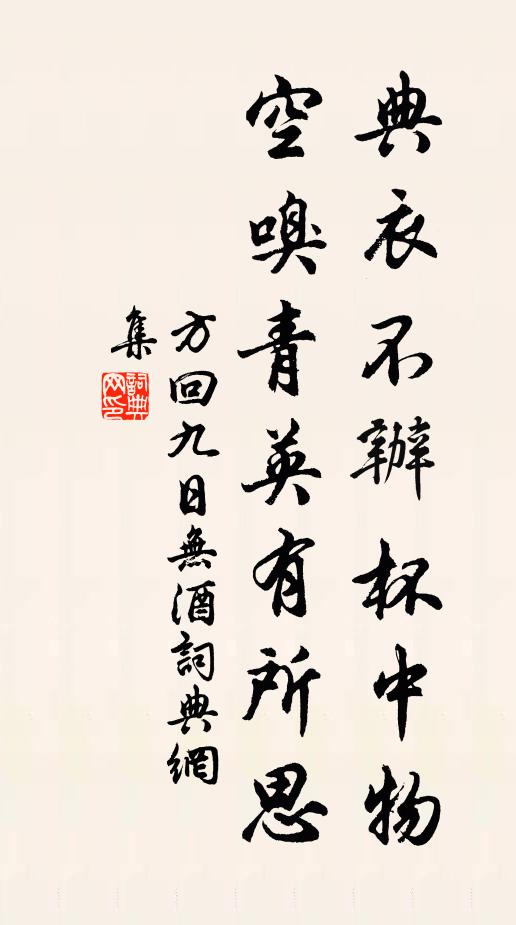 典衣不辦杯中物
空嗅青英有所思
方回九日無酒詞典網
集
詞典
网印